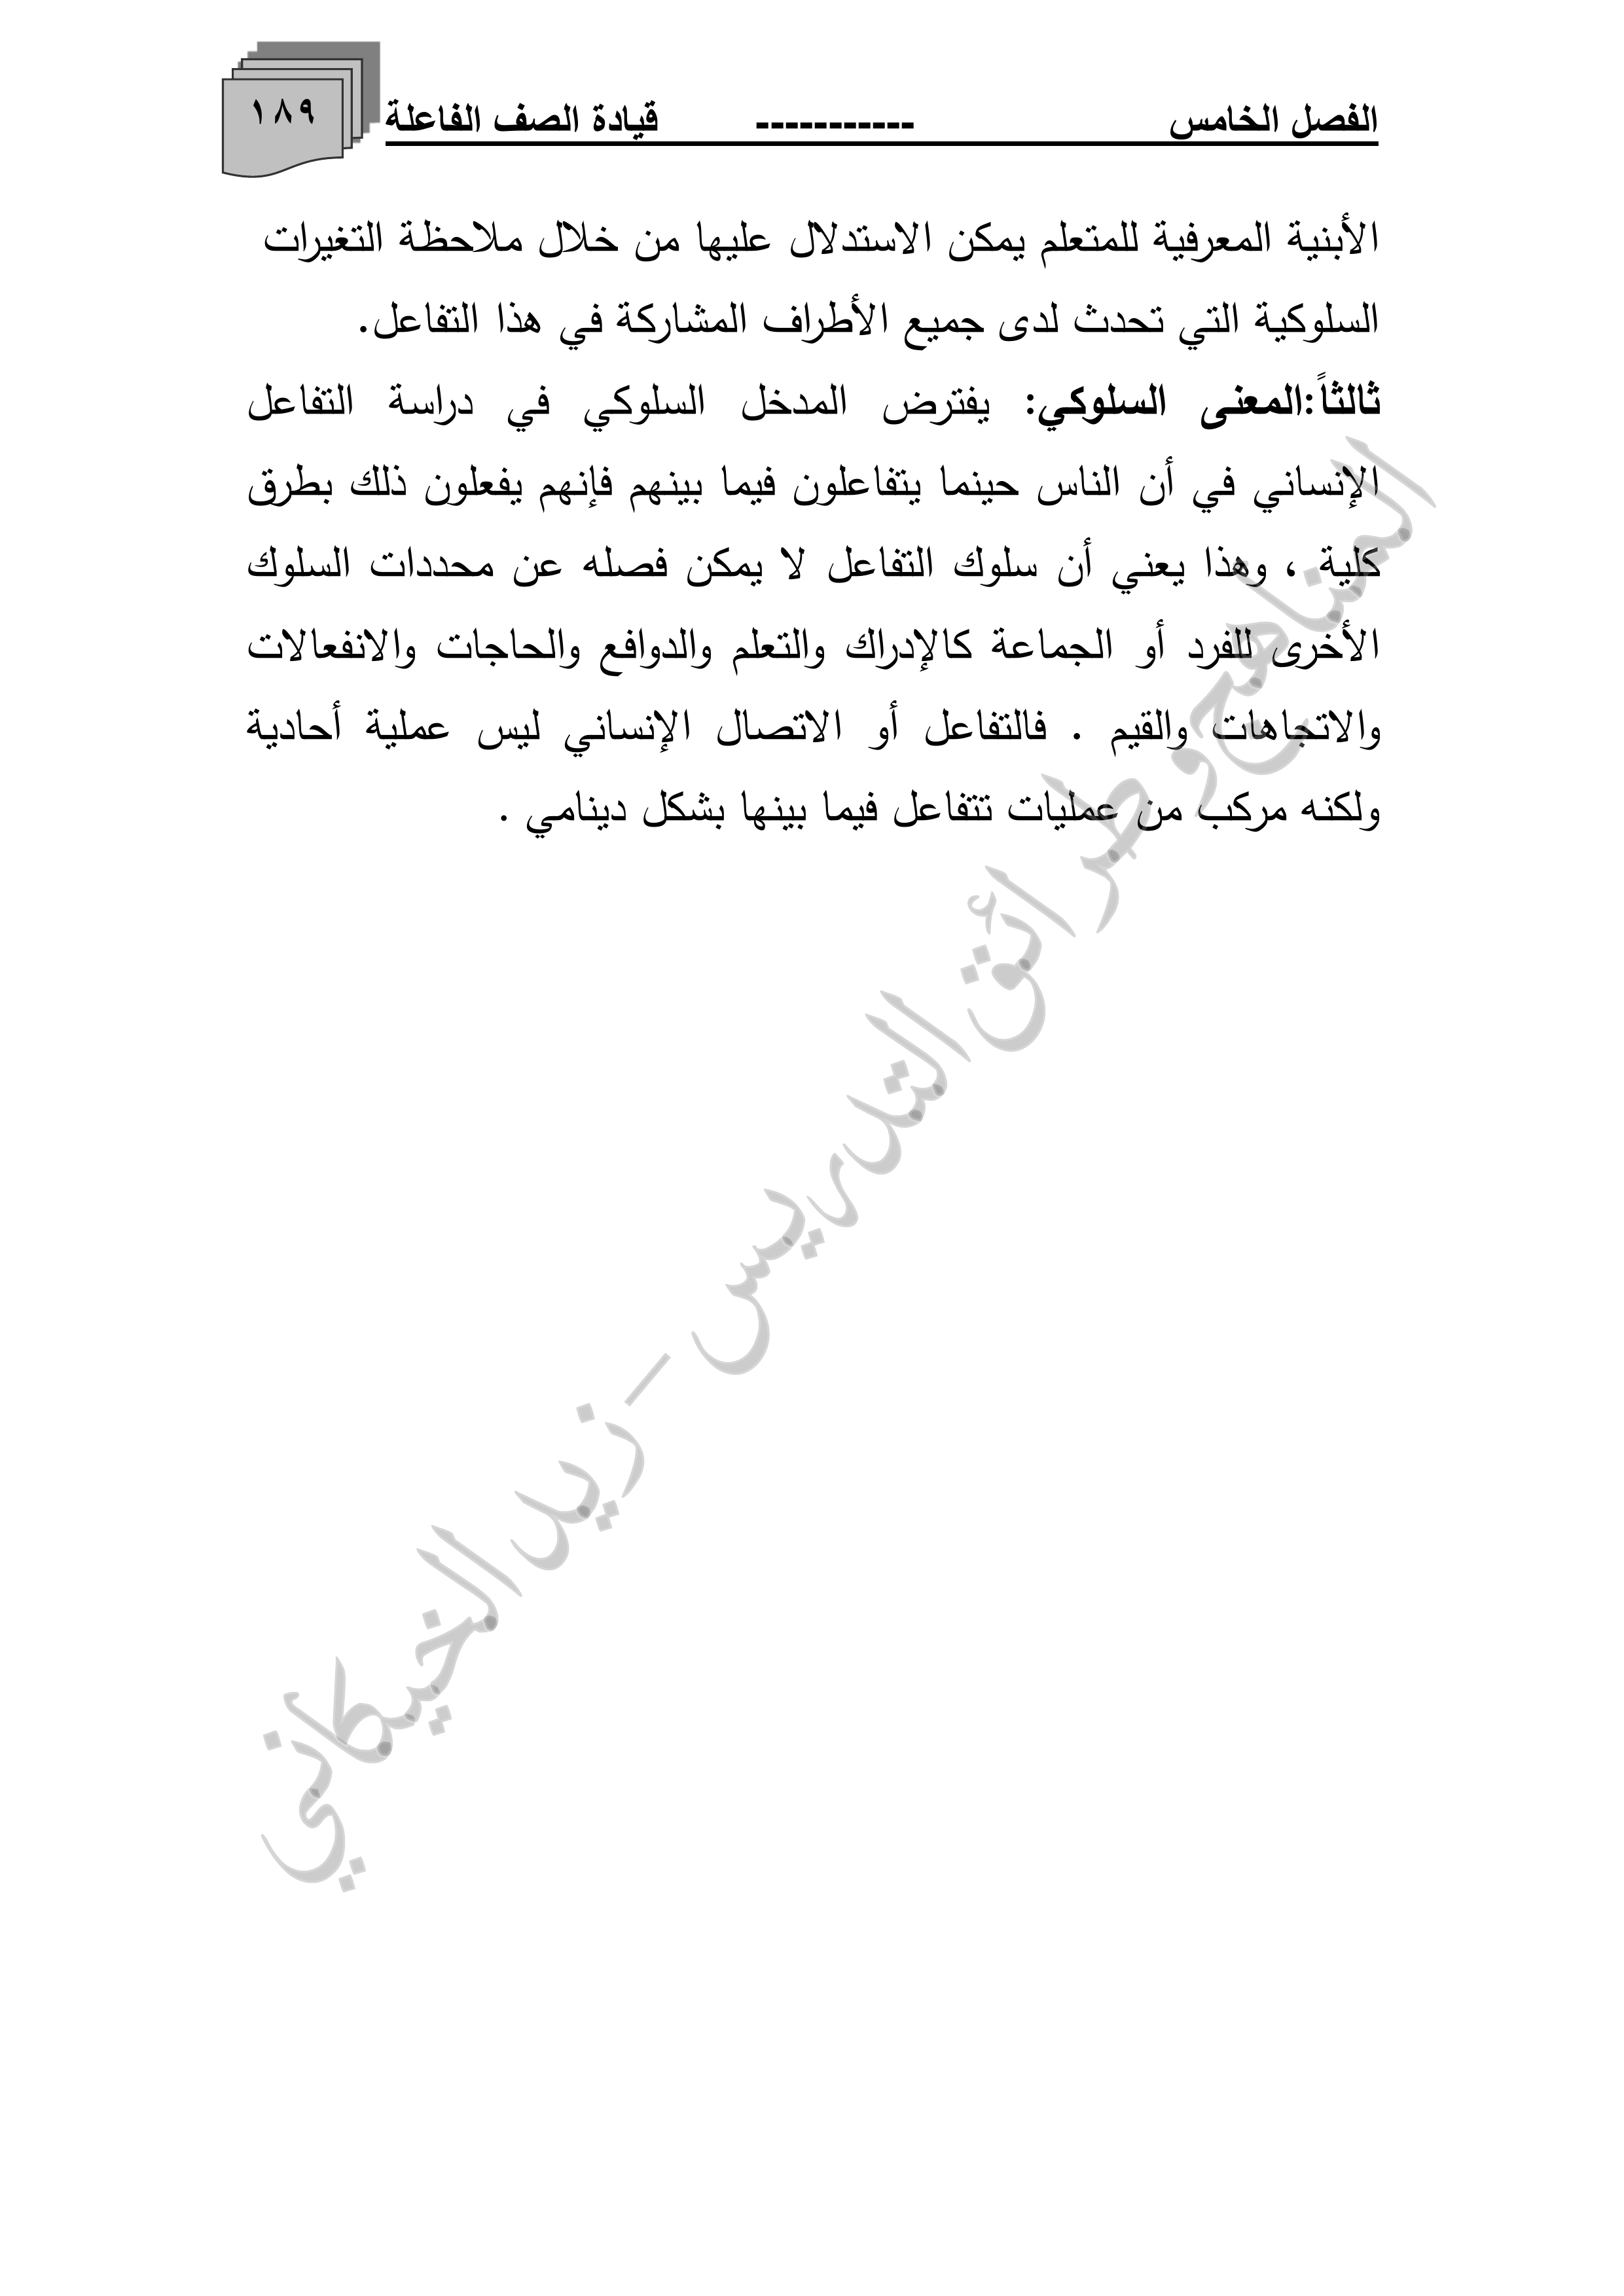 الفصل الخامس ----------- قيادة الصف الفاعلة ١٨٩
الأبنية المعرفية للمتعلم يمكن الاستدلال عليها من خلال ملاحظة التغيرات
السلوكية التي تحدث لدى جميع الأطراف المشاركة في هذا التفاعل.
ثالثاً:المعنى السلوكي: يفترض المدخل السلوكي في دراسة التفاعل
الإنساني في أن الناس حينما يتفاعلون فيما بينهم فإنهم يفعلون ذلك بطرق
كلية ، وهذا يعني أن سلوك التفاعل لا يمكن فصله عن محددات السلوك
الأخرى للفرد أو الجماعة كالإدراك والتعلم والدوافع والحاجات والانفعالات
والاتجاهات والقيم . فالتفاعل أو الاتصال الإنساني ليس عملية أحادية
ولكنه مركب من عمليات تتفاعل فيما بينها بشكل دينامي .
المناهج وطرائق التدريس - زيد الخيكاني